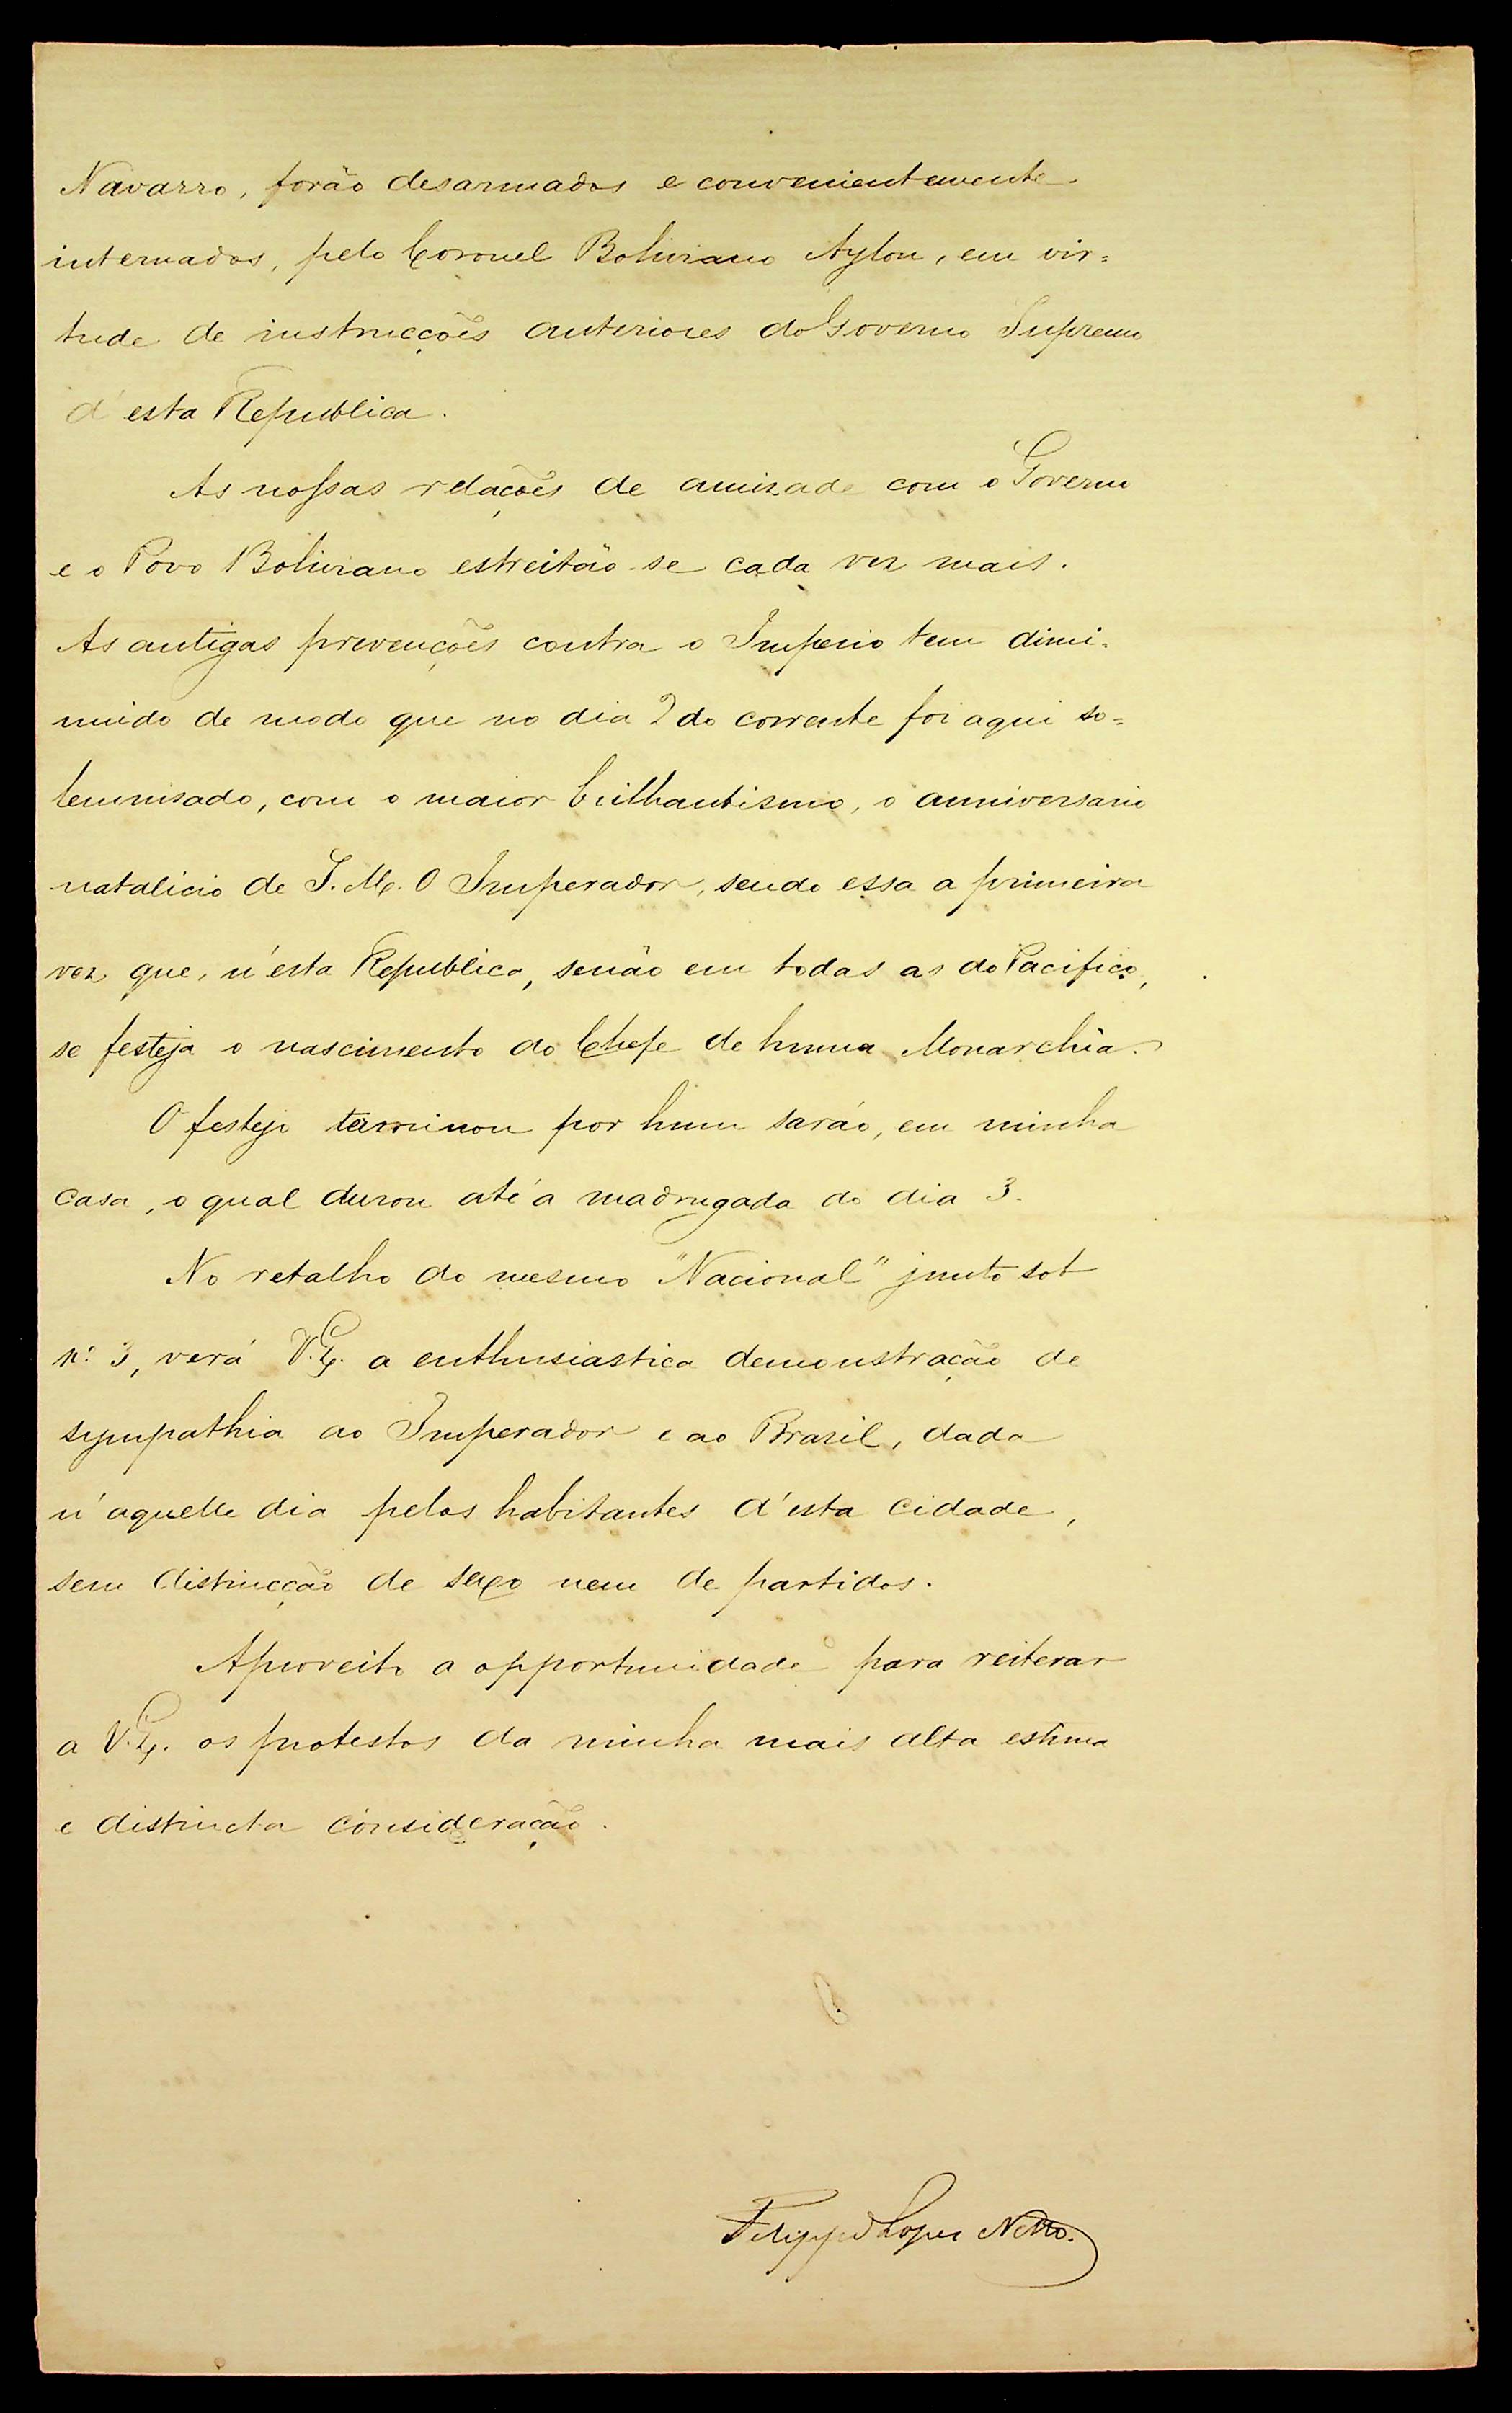 Navarro, forão desarmados e convenientemente
internados, pelo Coronel Boliviano Aylon, em vir=
tude de instrucções anteriores do Governo Supremo
d'esta Republica.
As nossas relações de amizade com o Governo
e o Povo Boliviano estreitão-se cada vez mais.
As antigas prevenções contra o Imperio tem dimi-
nuido de modo que no dia 2 do corrente foi aqui so=
lemnisado, com o maior brilhantismo, o anniversario
natalicio de S. M. O Imperador, sendo essa a primeira
vez que, n'esta Republica, senão em todas as do Pacifico,
se festeja o nascimento do Chefe de huma Monarchia.
O festejo terminou por hum saráo, em minha
casa, o qual durou até a madrugada do dia 3.
No retalho do mesmo "Nacional" junto sob
nº 3, verá V. Ex. a enthusiastica demonstração de
sympathia ao Imperador e ao Brazil, dada
n'aquelle dia pelos habitantes d'esta cidade,
sem distincção de sexo nem de partidos.
Aproveito a opportunidade para reiterar
a V. Ex. os protestos da minha mais alta estima
e distincta consideração.
Felippe Lopes Netto.